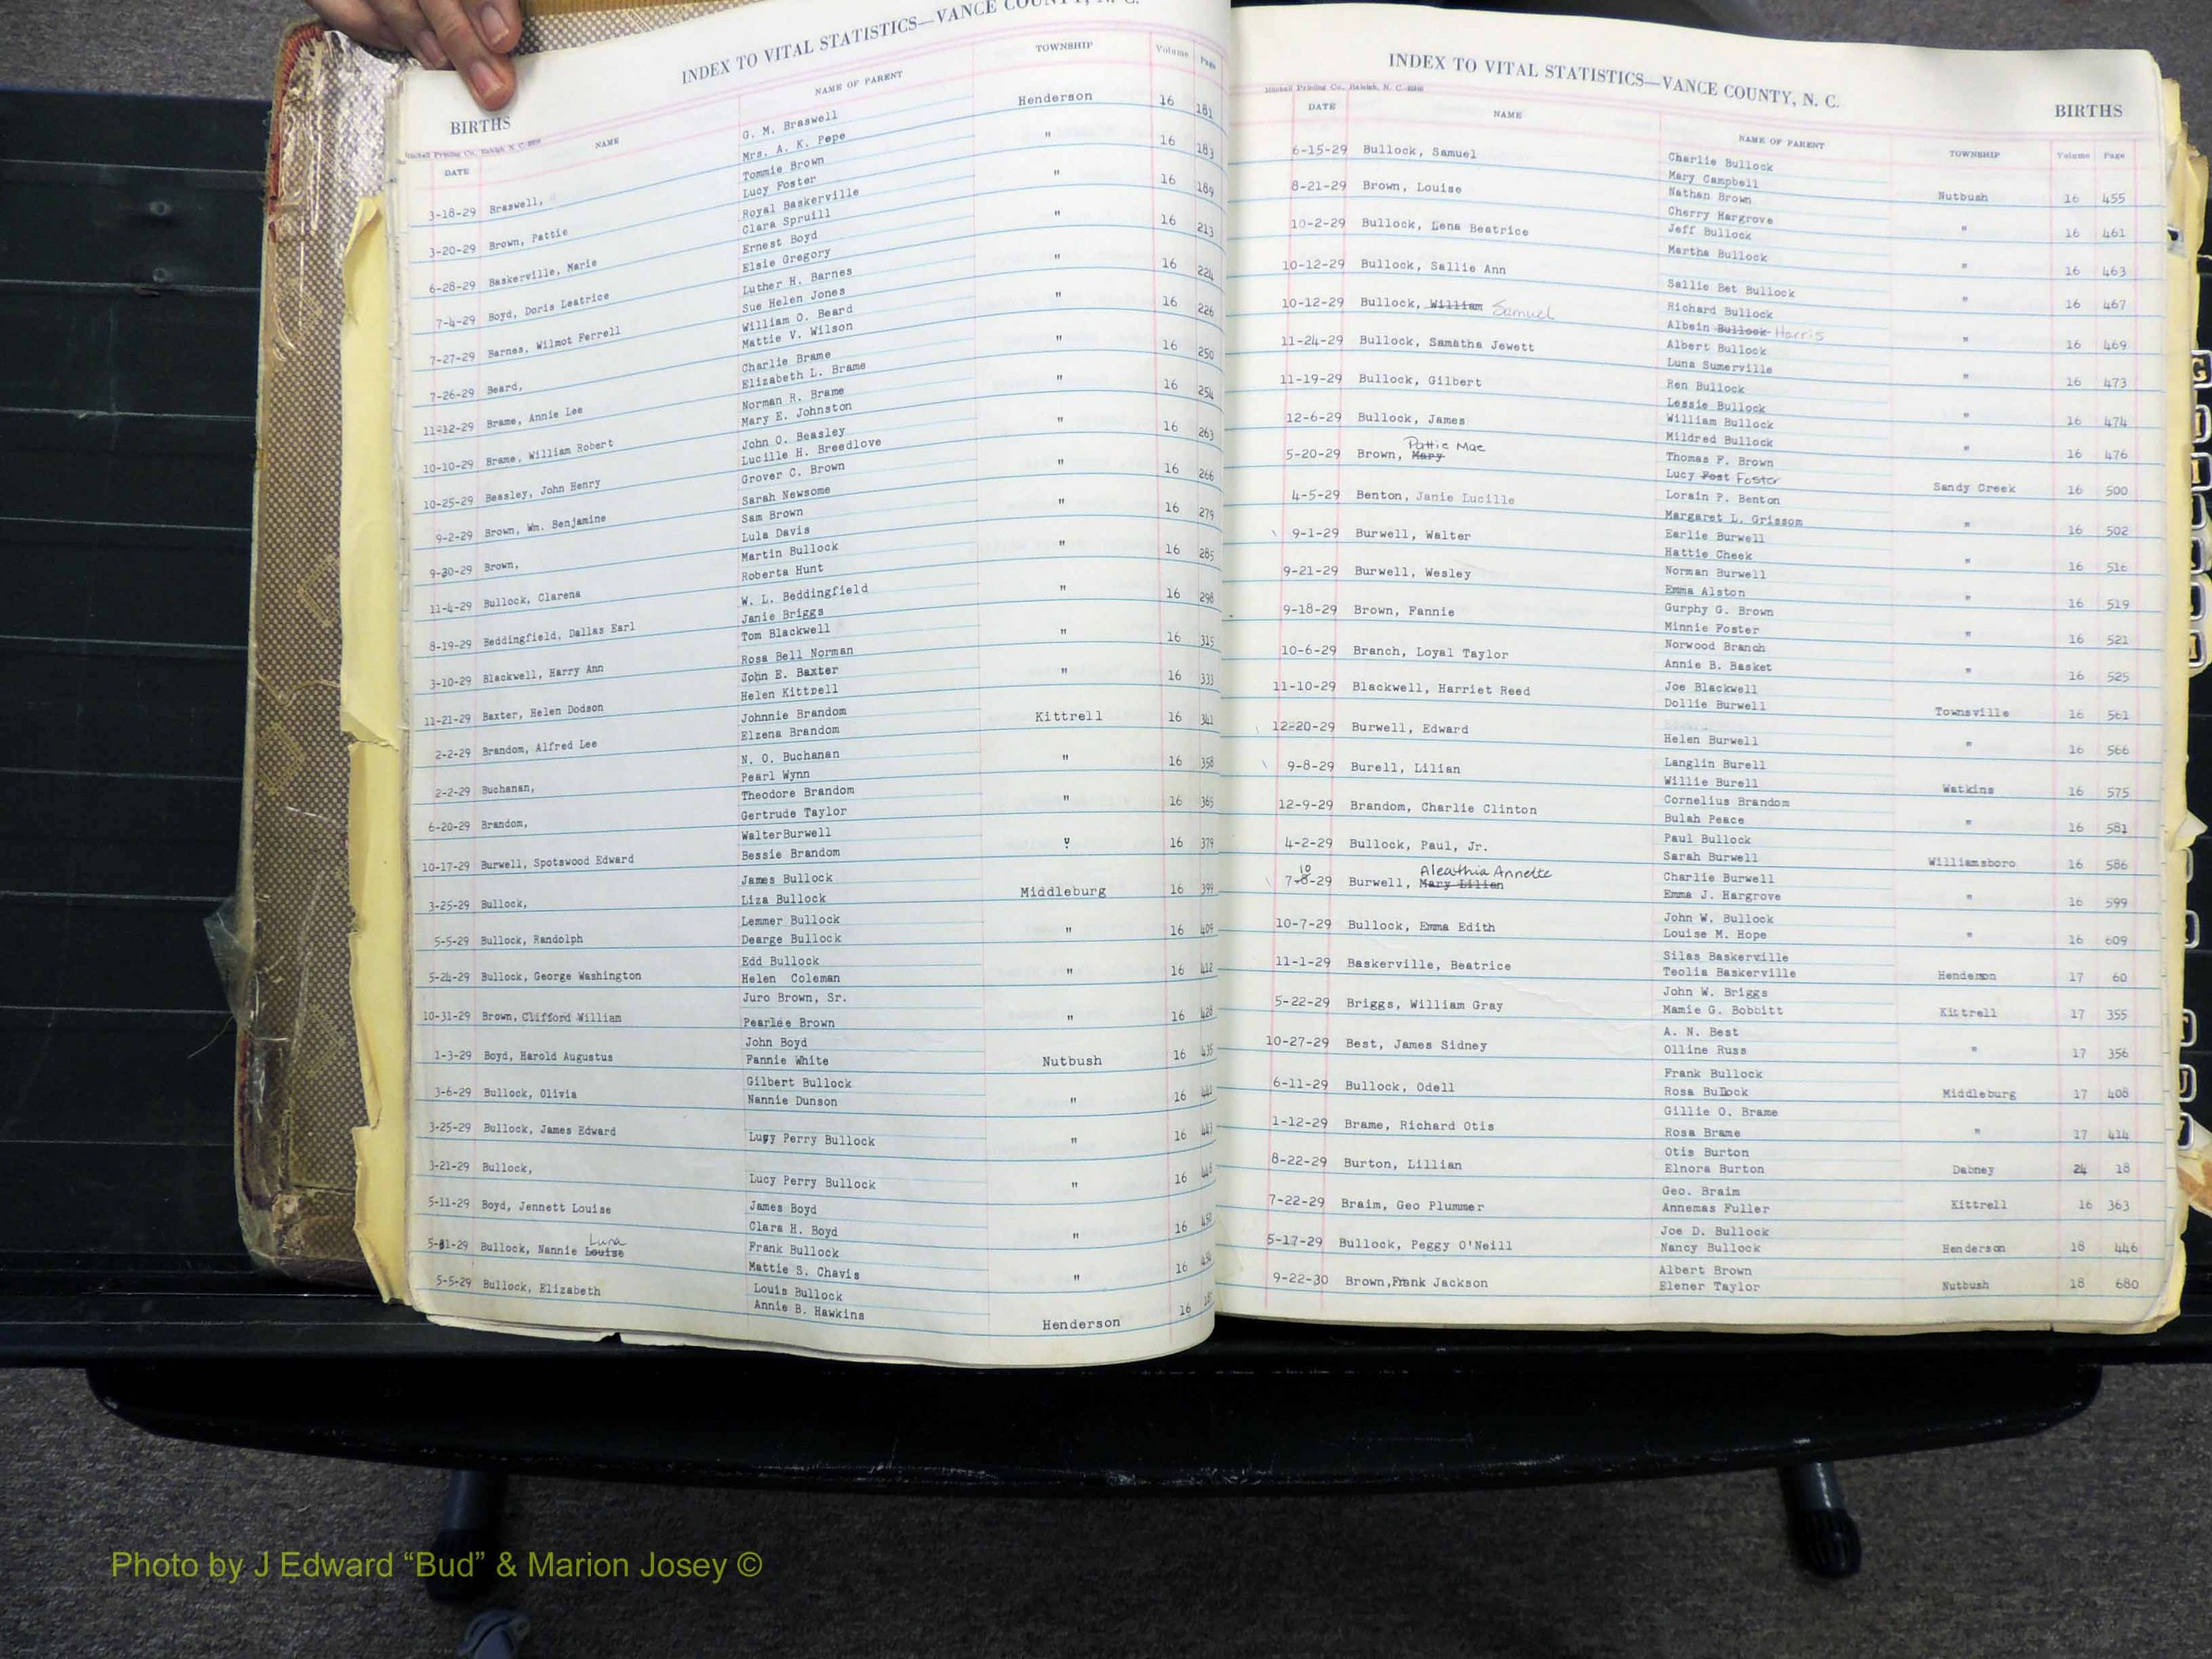 INDEX TO VITAL STATISTICS—VANCE COUNTY, N. C.
BIRTHS
DATE NAME NAME OF PARENT TOWNSHIP Volume Page
3-18-29 Braswell, G. M. Braswell Henderson 16 181
Mrs. A. K. Pepe
3-20-29 Brown, Pattie Tommie Brown " 16 183
Lucy Foster
6-28-29 Baskerville, Marie Royal Baskerville " 16 189
Clara Spruill
7-4-29 Boyd, Doris Leatrice Ernest Boyd " 16 213
Elsie Gregory
7-27-29 Barnes, Wilmot Ferrell Luther H. Barnes " 16 224
Sue Helen Jones
7-26-29 Beard, William O. Beard " 16 226
Mattie V. Wilson
11-12-29 Brame, Annie Lee Charlie Brame " 16 250
Elizabeth L. Brame
10-10-29 Brame, William Robert Norman R. Brame " 16 254
Mary E. Johnston
10-25-29 Beasley, John Henry John O. Beasley " 16 263
Lucille H. Breedlove
9-2-29 Brown, Wm. Benjamine Grover C. Brown " 16 266
Sarah Newsome
9-30-29 Brown, Sam Brown " 16 279
Lula Davis
11-4-29 Bullock, Clarena Martin Bullock " 16 285
Roberta Hunt
8-19-29 Beddingfield, Dallas Earl W. L. Beddingfield " 16 298
Janie Briggs
3-10-29 Blackwell, Harry Ann Tom Blackwell " 16 315
Rosa Bell Norman
11-21-29 Baxter, Helen Dodson John E. Baxter " 16 333
Helen Kittrell
2-2-29 Brandom, Alfred Lee Johnnie Brandom Kittrell 16 341
Elzena Brandom
2-2-29 Buchanan, N. O. Buchanan " 16 358
Pearl Wynn
6-20-29 Brandom, Theodore Brandom " 16 365
Gertrude Taylor
10-17-29 Burwell, Spotswood Edward WalterBurwell " 16 379
Bessie Brandom
3-25-29 Bullock, James Bullock Middleburg 16 399
Liza Bullock
5-5-29 Bullock, Randolph Lemmer Bullock " 16 409
Dearge Bullock
5-24-29 Bullock, George Washington Edd Bullock " 16 412
Helen Coleman
10-31-29 Brown, Clifford William Juro Brown, Sr. " 16 428
Pearlee Brown
1-3-29 Boyd, Harold Augustus John Boyd Nutbush 16 435
Fannie White
3-6-29 Bullock, Olivia Gilbert Bullock " 16 441
Nannie Dunson
3-25-29 Bullock, James Edward Lucy Perry Bullock " 16 443
3-21-29 Bullock, Lucy Perry Bullock " 16
5-11-29 Boyd, Jennett Louise James Boyd " 16
Clara H. Boyd
Luna
Bullock, Nannie Louise Frank Bullock " 16
Mattie S. Chavis
5-5-29 Bullock, Elizabeth Louis Bullock Henderson 16
Annie B. Hawkins
INDEX TO VITAL STATISTICS—VANCE COUNTY, N. C.
BIRTHS
Mitchell Printing Co., Raleigh, N. C.
DATE NAME NAME OF PARENT TOWNSHIP Volume Page
6-15-29 Bullock, Samuel Charlie Bullock Nutbush 16 455
Mary Campbell
8-21-29 Brown, Louise Nathan Brown " 16 461
Cherry Hargrove
10-2-29 Bullock, Lena Beatrice Jeff Bullock " 16 463
Martha Bullock
10-12-29 Bullock, Sallie Ann Sallie Bet Bullock " 16 467
10-12-29 Bullock, William Samuel Richard Bullock " 16 469
Albein Bullock Harris
11-24-29 Bullock, Samatha Jewett Albert Bullock " 16 473
Luna Sumerville
11-19-29 Bullock, Gilbert Ren Bullock " 16 474
Lessie Bullock
12-6-29 Bullock, James William Bullock " 16 476
Mildred Bullock
Pattie Mae
5-20-29 Brown, Mary Thomas F. Brown Sandy Creek 16 500
Lucy Post Foster
4-5-29 Benton, Janie Lucille Lorain P. Benton " 16 502
Margaret L. Grissom
9-1-29 Burwell, Walter Earlie Burwell " 16 516
Hattie Cheek
9-21-29 Burwell, Wesley Norman Burwell " 16 519
Emma Alston
9-18-29 Brown, Fannie Gurphy G. Brown " 16 521
Minnie Foster
10-6-29 Branch, Loyal Taylor Norwood Branch " 16 525
Annie B. Basket
11-10-29 Blackwell, Harriet Reed Joe Blackwell Townsville 16 561
Dollie Burwell
12-20-29 Burwell, Edward Helen Burwell " 16 566
9-8-29 Burell, Lilian Langlin Burell Watkins 16 575
Willie Burell
12-9-29 Brandom, Charlie Clinton Cornelius Brandom " 16 581
Bulah Peace
4-2-29 Bullock, Paul, Jr. Paul Bullock Williamsboro 16 586
Sarah Burwell
10 Aleathia Annette
7-8-29 Burwell, Mary Lilian Charlie Burwell " 16 599
Emma J. Hargrove
10-7-29 Bullock, Emma Edith John W. Bullock " 16 609
Louise M. Hope
11-1-29 Baskerville, Beatrice Silas Baskerville Henderson 17 60
Teolia Baskerville
5-22-29 Briggs, William Gray John W. Briggs Kittrell 17 355
Mamie G. Bobbitt
10-27-29 Best, James Sidney A. N. Best " 17 356
Olline Russ
6-11-29 Bullock, Odell Frank Bullock Middleburg 17 408
Rosa Bullock
1-12-29 Brame, Richard Otis Gillie O. Brame " 17 414
Rosa Brame
8-22-29 Burton, Lillian Otis Burton Dabney 24 18
Elnora Burton
7-22-29 Braim, Geo Plummer Geo. Braim Kittrell 16 363
Annemas Fuller
5-17-29 Bullock, Peggy O'Neill Joe D. Bullock Henderson 18 446
Nancy Bullock
9-22-30 Brown,Frank Jackson Albert Brown Nutbush 18 680
Elener Taylor
Photo by J Edward “Bud” & Marion Josey ©